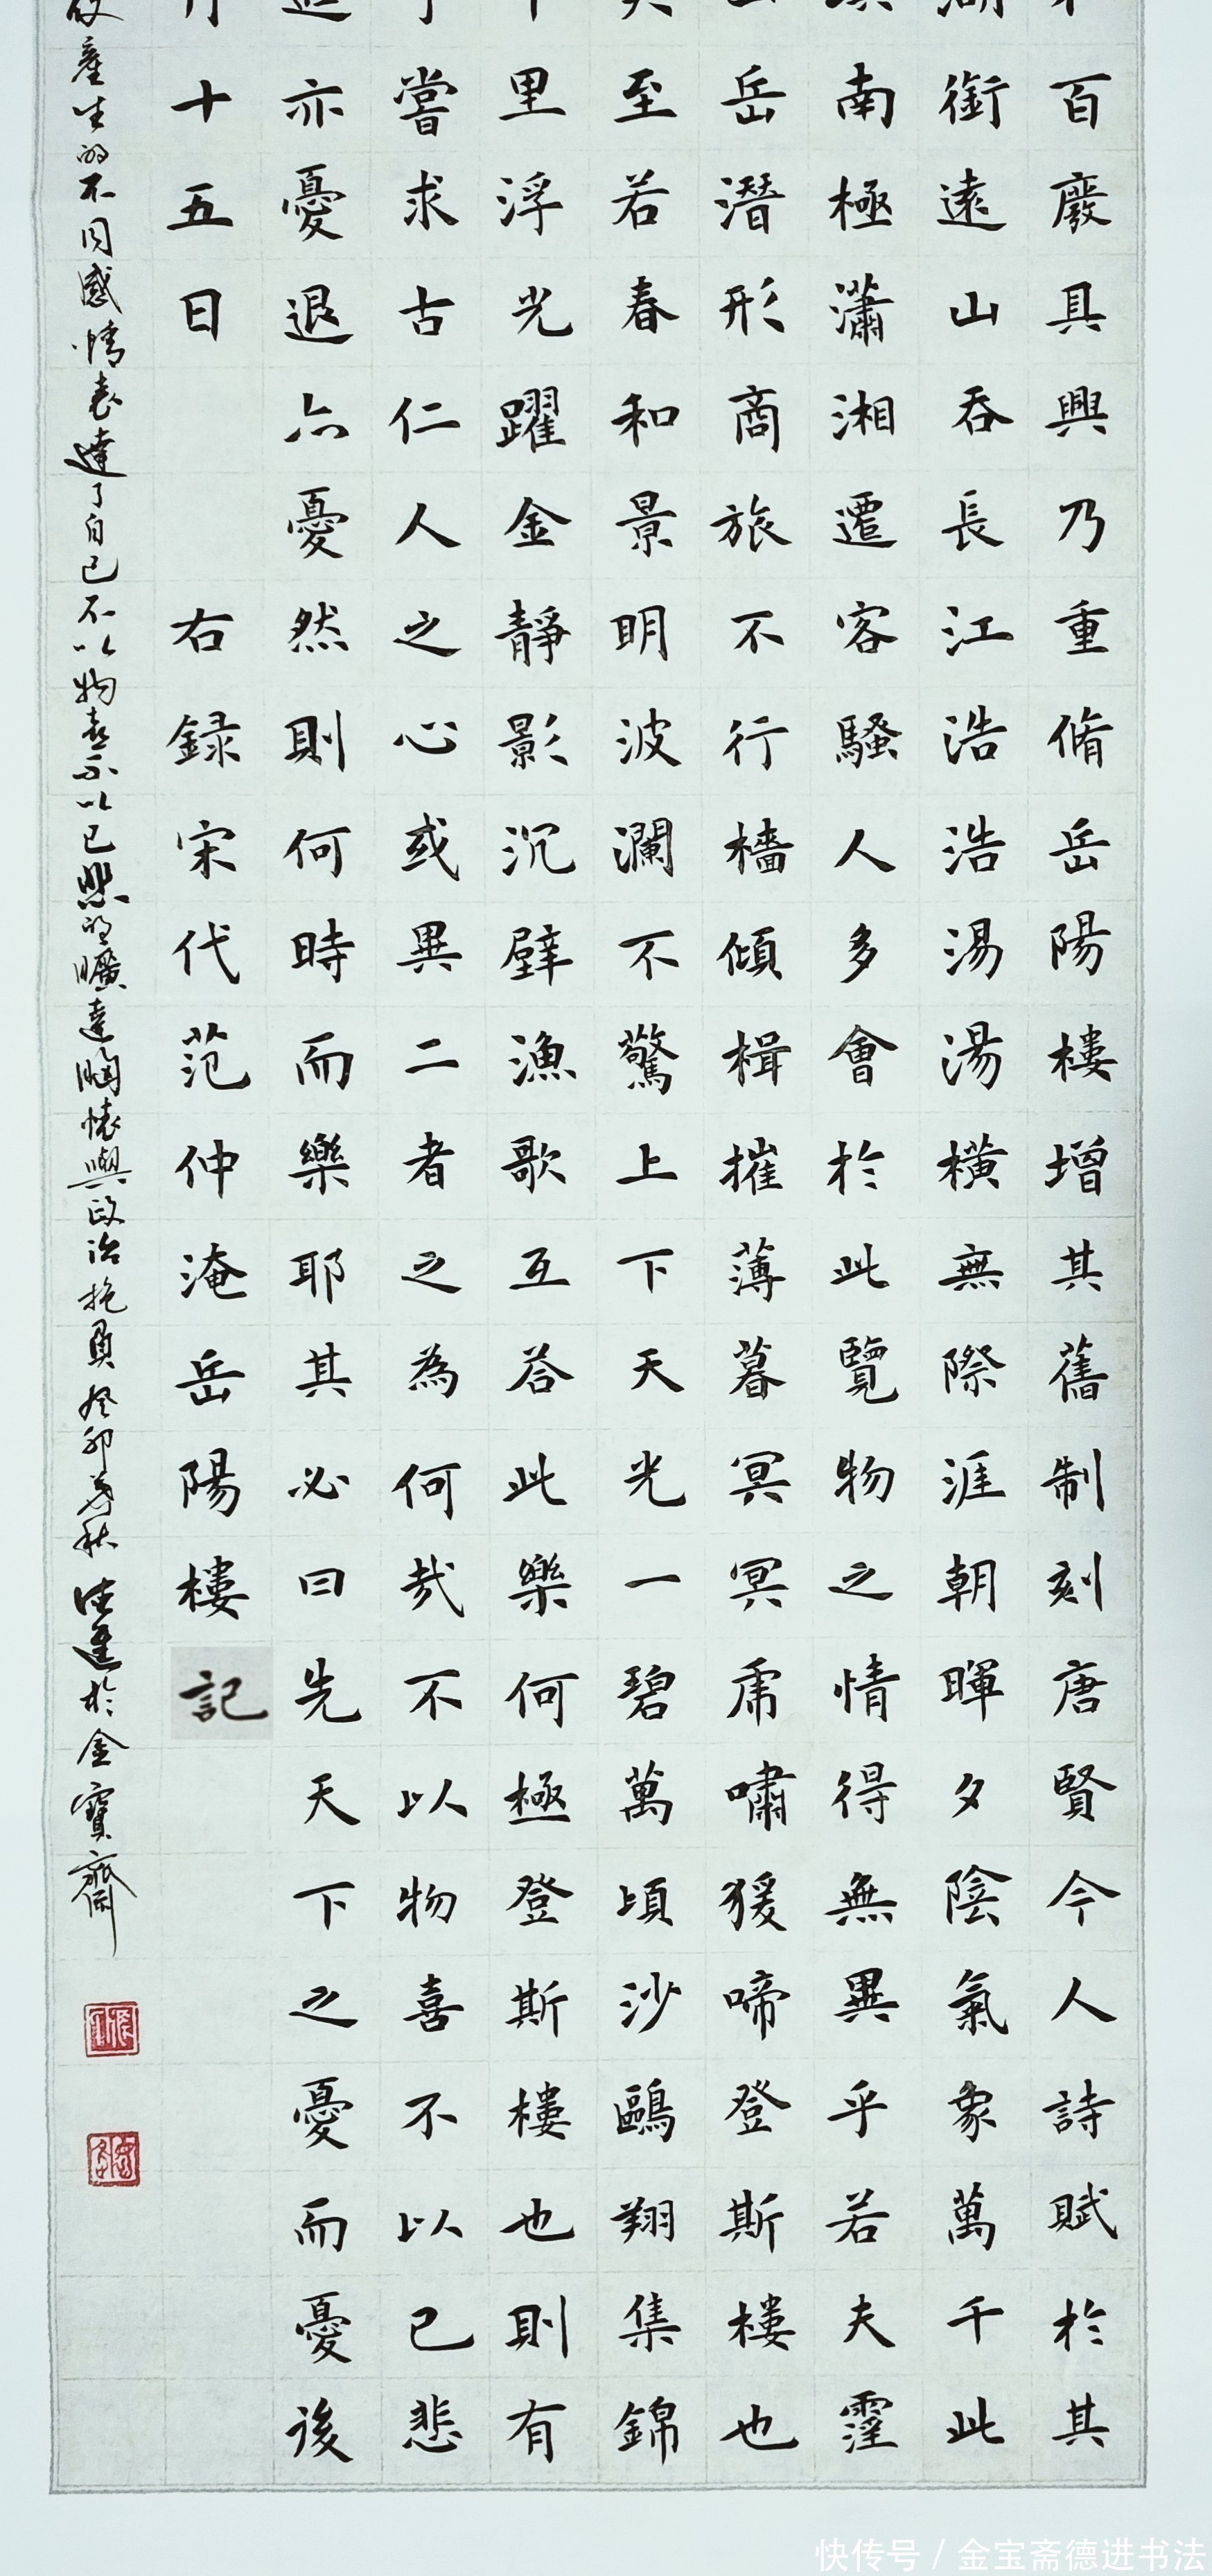 百廢具興乃重脩岳陽樓增其舊制刻唐賢今人詩賦於其
湖銜遠山吞長江浩浩湯湯橫無際涯朝暉夕陰氣象萬千此
南極瀟湘遷客騷人多會於此覽物之情得無異乎若夫霪
岳潛形商旅不行檣傾楫摧薄暮冥冥虎嘯猨啼登斯樓也
至若春和景明波瀾不驚上下天光一碧萬頃沙鷗翔集錦
里浮光躍金靜影沉璧漁歌互荅此樂何極登斯樓也則有
嘗求古仁人之心或異二者之為何哉不以物喜不以己悲
亦憂退亦憂然則何時而樂耶其必曰先天下之憂而憂後
十五日 右録宋代范仲淹岳陽樓記
產生的不同感情表達了自己不以物喜不以己悲的曠達胸懷與政治抱負癸卯孟秋德進於金寶齋
快传号 / 金宝斋德进书法